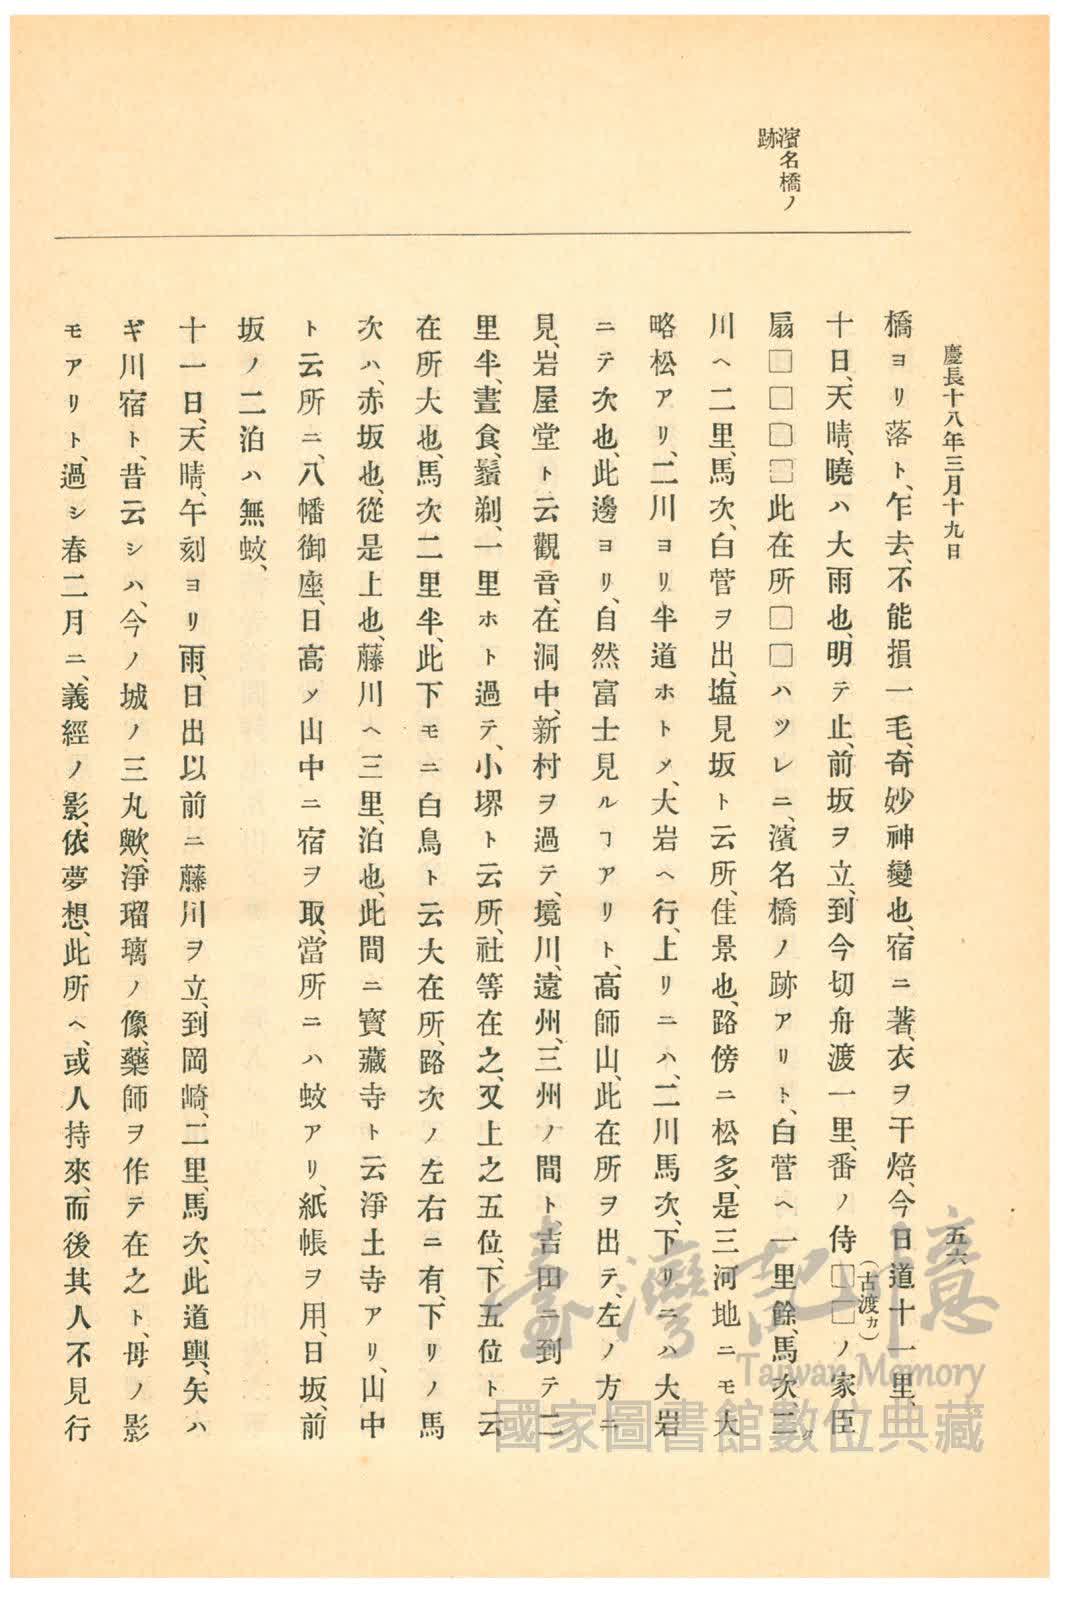 慶長十八年三月十九日
五六
濱名橋ノ
跡
橋ヨリ落ト、乍去、不能損一毛、奇妙神變也、宿ニ著、衣ヲ干焙、今日道十一里、
十日、天晴、曉ハ大雨也、明テ止、前坂ヲ立、到今切舟渡一里、番ノ侍□□ノ家臣
(古渡カ)
扇□□□□此在所□□ハツレニ、濱名橋ノ跡アリト、白菅ヘ一里餘、馬次、二
川ヘ二里、馬次、白菅ヲ出、塩見坂ト云所、佳景也、路傍ニ松多、是三河地ニモ大
略松アリ、二川ヨリ半道ホトメ、大岩ヘ行、上リニハ、二川馬次、下リニハ大岩
ニテ次也、此邊ヨリ、自然富士見ルヿアリト、高師山、此在所ヲ出テ、左ノ方ニ
見、岩屋堂ト云觀音、在洞中、新村ヲ過テ、境川、遠州、三州ノ間ト、吉田ニ到テ二
里半、晝食、鬚剃、一里ホト過テ、小堺ト云所、社等在之、又上之五位、下五位ト云
在所大也、馬次二里半、此下モニ白鳥ト云大在所、路次ノ左右ニ有、下リノ馬
次ハ、赤坂也、從是上也、藤川ヘ三里、泊也、此間ニ寳藏寺ト云淨土寺アリ、山中
ト云所ニ、八幡御座、日高メ山中ニ宿ヲ取、當所ニハ蚊アリ、紙帳ヲ用、日坂、前
坂ノ二泊ハ無蚊、
十一日、天晴、午刻ヨリ雨、日出以前ニ藤川ヲ立、到岡崎、二里、馬次、此道輿、矢ハ
ギ川宿ト、昔云シハ、今ノ城ノ三丸歟、淨瑠璃ノ像、藥師ヲ作テ在之ト、母ノ影
モアリト、過シ春二月ニ、義經ノ影、依夢想、此所ヘ、或人持來、而後其人不見行
臺灣記憶
Taiwan Memory
國家圖書館數位典藏